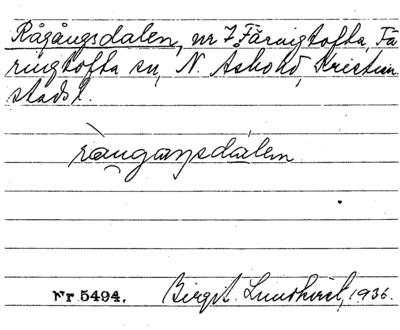 Rågångsdalen, nr 7 Färingtofta, Fä
ringtofta sn, N. Åsbo hd, Kristian
stads l.
rångaŋsdàlen
Nr 5494. Birgit Lundkvist, 1936.